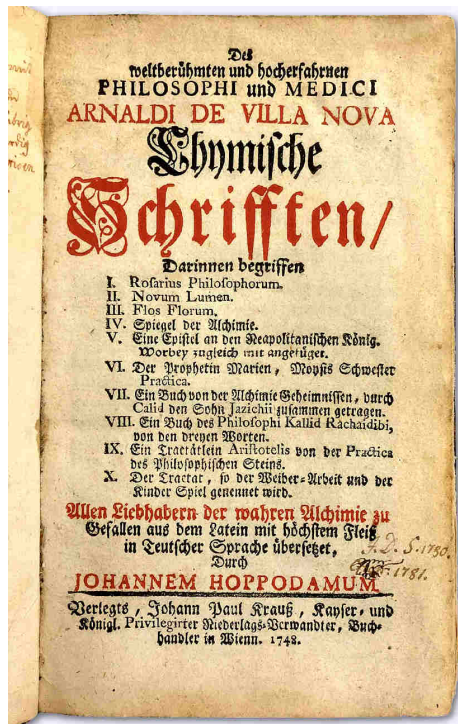 Des
weltberühmten und hocherfahrnen
PHILOSOPHI und MEDICI
ARNALDI DE VILLA NOVA
Chymische
Schrifften/
Darinnen begriffen
I. Rosarius Philosophorum.
II. Novum Lumen.
III. Flos Florum.
IV. Spiegel der Alchimie.
V. Eine Epistel an den Neapolitanischen König.
Worbey zugleich mit angefüget.
VI. Der Prophetin Marien, Moysis Schwester
Practica.
VII. Ein Buch von der Alchimie Geheimnissen, durch
Calid den Sohn Jazichii zusammen getragen.
VIII. Ein Buch des Philosophi Kallid Rachaidibi,
von den dreyen Worten.
IX. Ein Tractätlein Aristotelis von der Practica
des Philosophischen Steins.
X. Der Tractat, so der Weiber-Arbeit und der
Kinder Spiel genennet wird.
Allen Liebhabern der wahren Alchimie zu
Gefallen aus dem Latein mit höchstem Fleiß
in Teutscher Sprache übersetzet,
Durch
JOHANNEM HOPPODAMUM
Verlegts, Johann Paul Krauß, Kayser- und
Königl. Privilegirter Niederlags-Verwandter, Buch-
händler in Wienn. 1748.
1781.